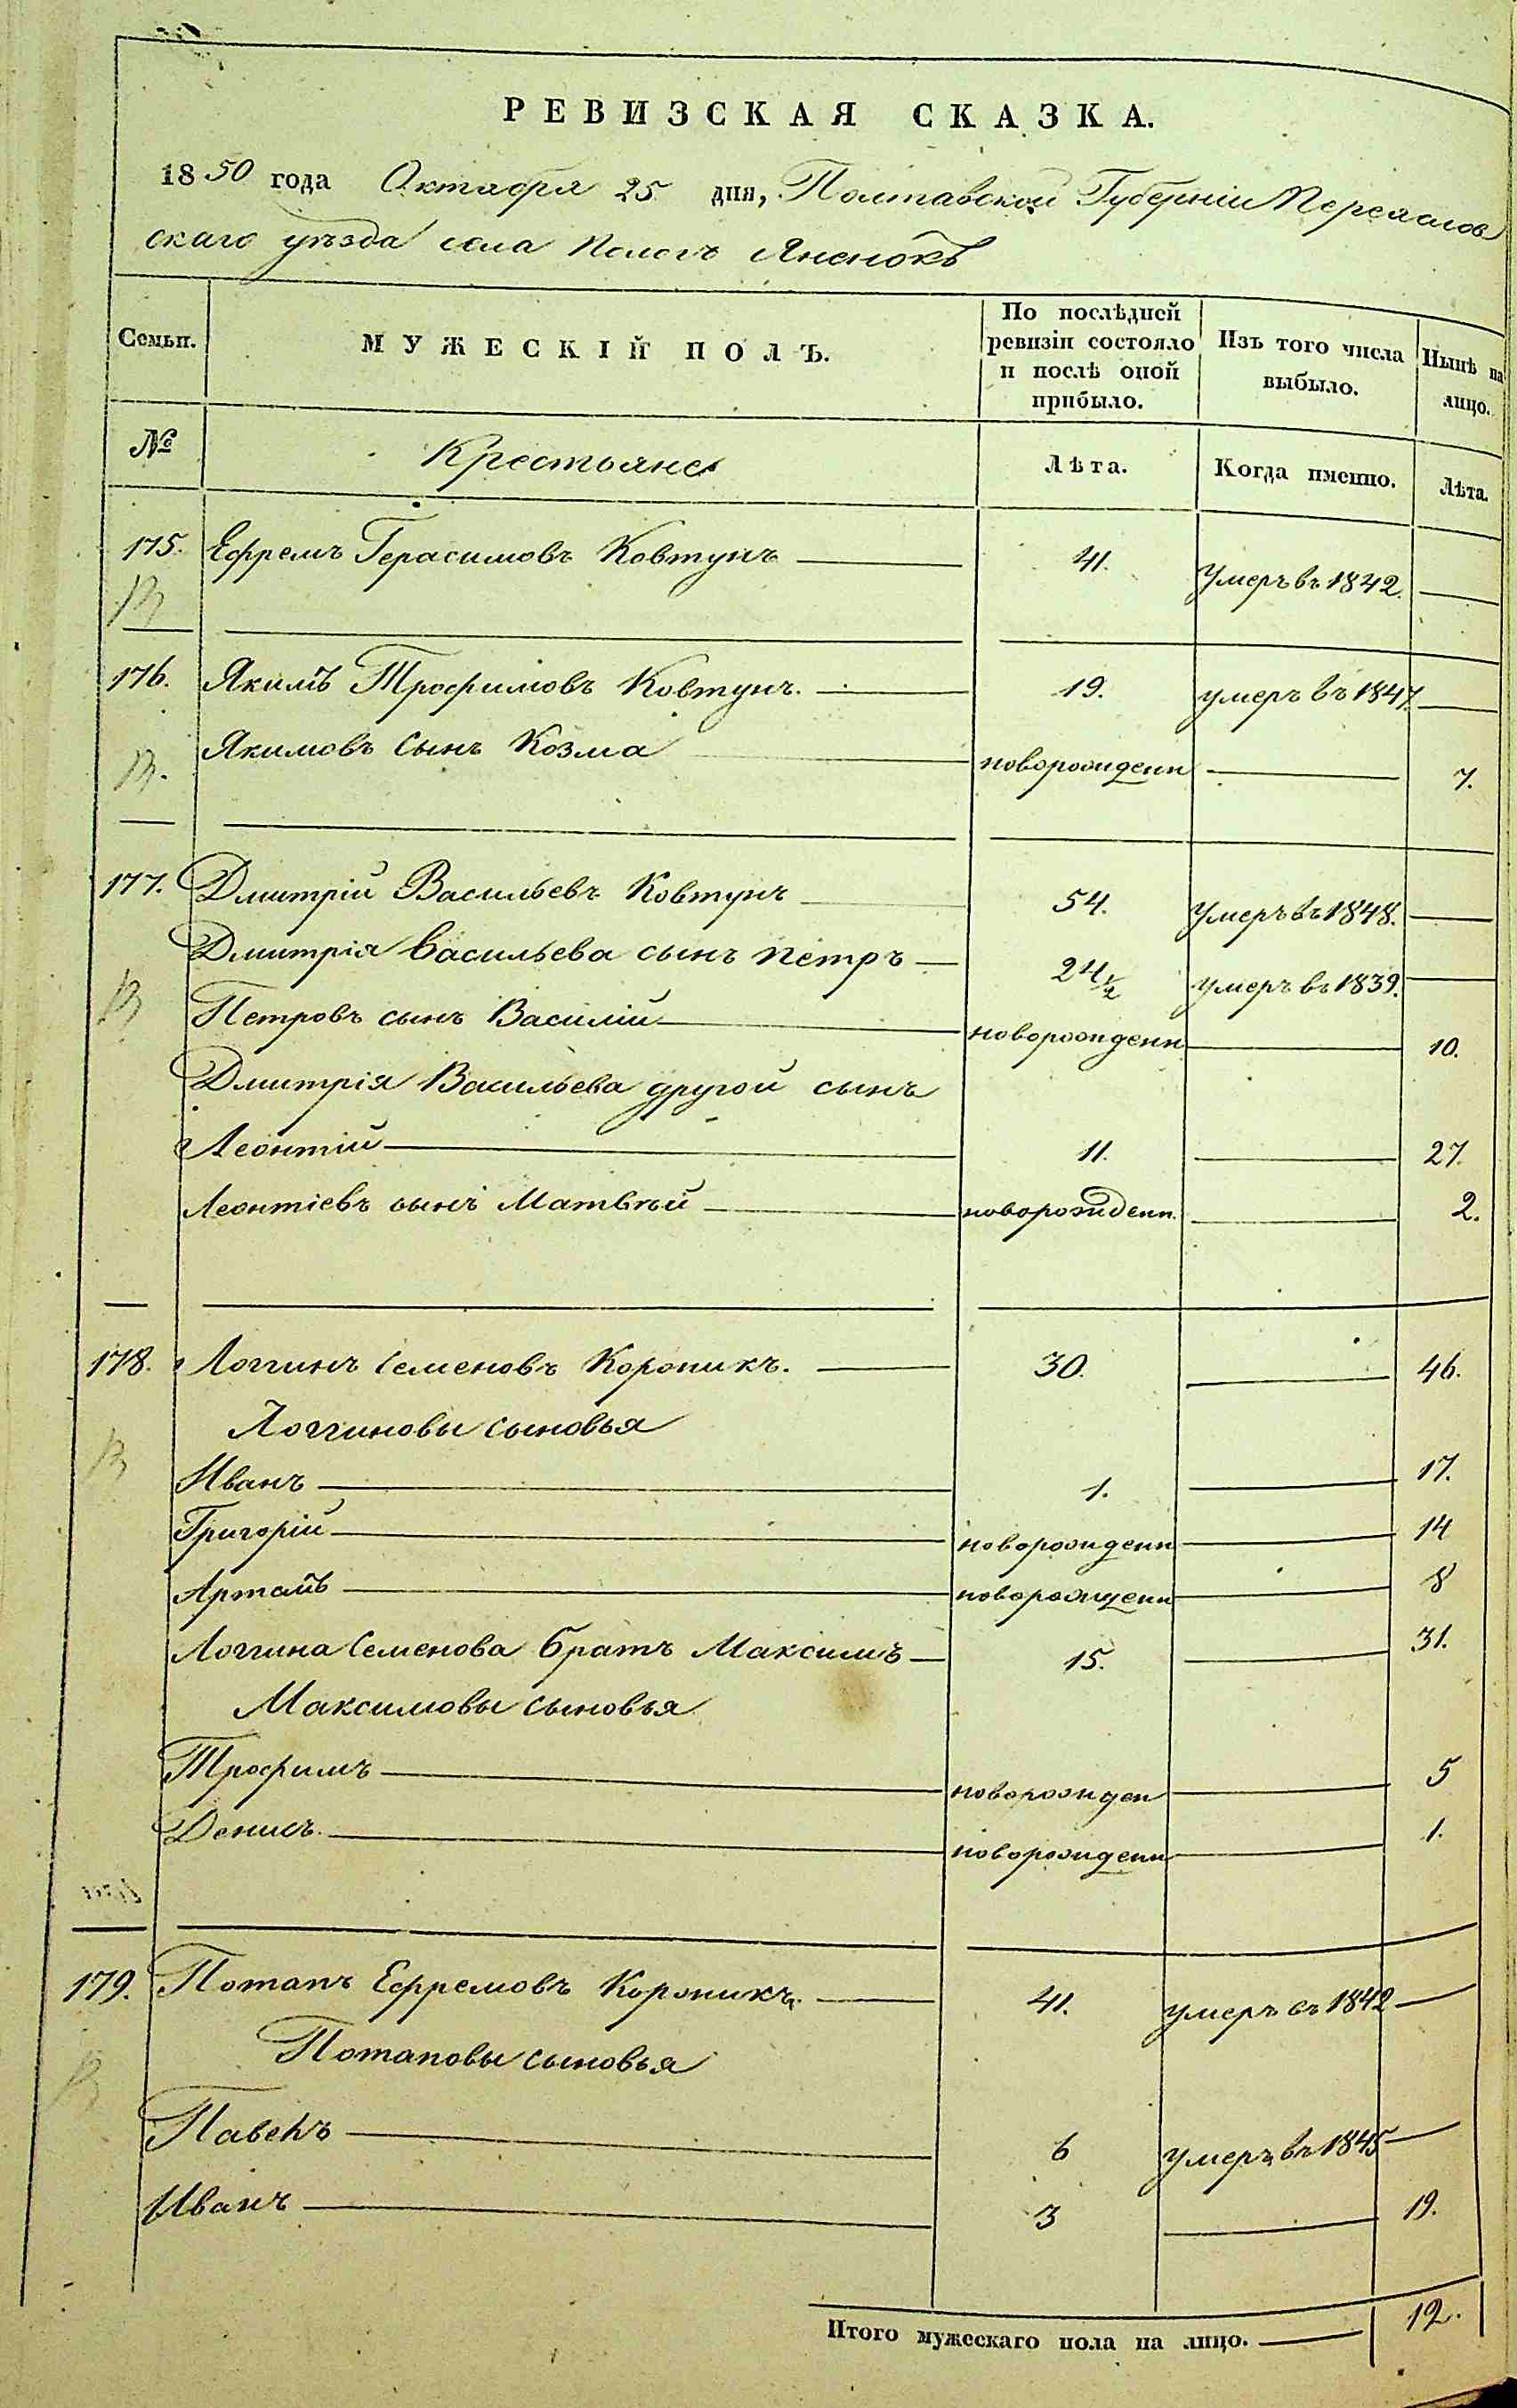 РЕВИЗСКАЯ СКАЗКА.
1850 года Октября 25 дня, Полтавской Губерніи Переяслов
скаго уѣзда села Пологъ Яненокъ
Семьи. МУЖЕСКІЙ ПОЛЪ. По послѣдней ревизіи состояло и послѣ оной прибыло. Изъ того числа выбыло. Нынѣ на лицо.
№ Крестьяне Лѣта. Когда именно. Лѣта.
175. Ефремъ Герасимовъ Ковтунъ 41. Умеръ въ 1842.
176. Якимъ Трофимовъ Ковтунъ. 19. умеръ въ 1847.
Якимовъ сынъ Козма новорожденн 7.
177. Дмитрій Васильевъ Ковтунъ 54. Умеръ въ 1848.
Дмитрія Васильева сынъ Петръ 24½ умеръ въ 1839.
Петровъ сынъ Василій новорожденн 10.
Дмитрія Васильева другой сынъ
Леонтій 11. 27.
Леонтіевъ сынъ Матвѣй новорожденн. 2.
178. Логгинъ Семеновъ Коропикъ. 30. 46.
Логгиновы сыновья
Иванъ 1. 17.
Григорій новорожденн 14
Артамъ новорожденн 8
Логгина Семенова братъ Максимъ 15. 31.
Максимовы сыновья
Трофимъ новорожден 5
Денисъ. новорожденн 1.
179. Потапъ Ефремовъ Коропикъ. 41. умеръ въ 1842
Потаповы сыновья
Павелъ 6 умеръ въ 1845
Иванъ 3 19.
Итого мужескаго пола на лицо. 12.